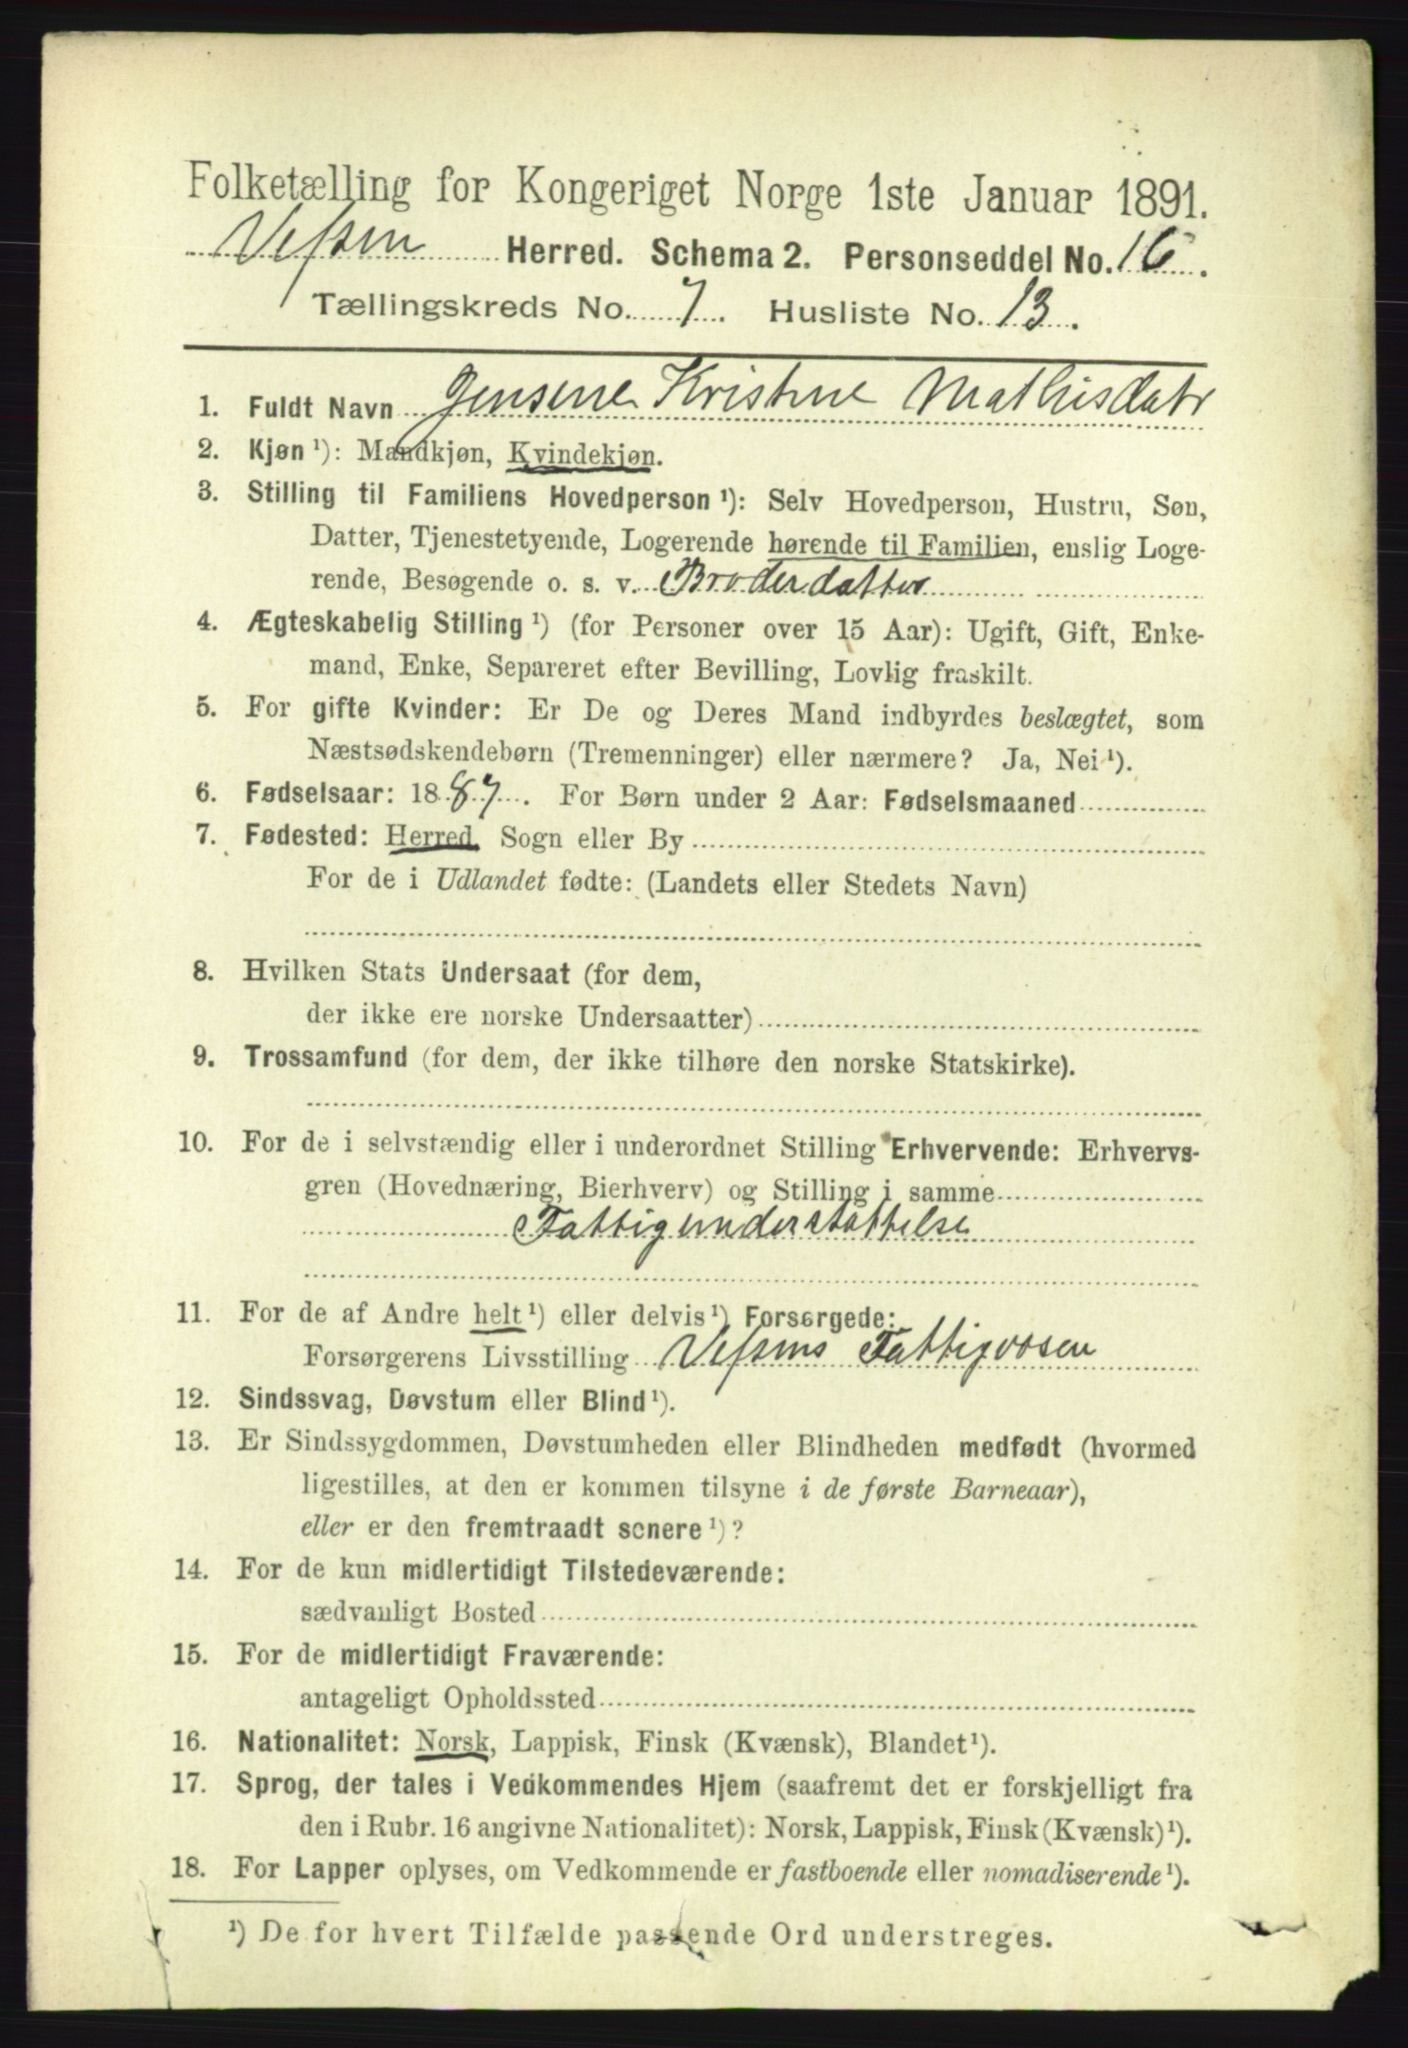 Folketælling for Kongeriget Norge 1ste Januar 1891.
Vefsen Herred. Schema 2. Personseddel No. 16.
Tællingskreds No. 7. Husliste No. 13.
1. Fuldt Navn Jensene Kristine Mathisdatr
2. Kjøn ¹): Mandkjøn, Kvindekjøn.
3. Stilling til Familiens Hovedperson ¹): Selv Hovedperson, Hustru, Søn,
Datter, Tjenestetyende, Logerende hørende til Familien, enslig Loge-
rende, Besøgende o. s. v. Broderdatter
4. Ægteskabelig Stilling ¹) (for Personer over 15 Aar): Ugift, Gift, Enke-
mand, Enke, Separeret efter Bevilling, Lovlig fraskilt.
5. For gifte Kvinder: Er De og Deres Mand indbyrdes beslægtet, som
Næstsødskendebørn (Tremenninger) eller nærmere? Ja, Nei ¹).
6. Fødselsaar: 1887. For Børn under 2 Aar: Fødselsmaaned
7. Fødested: Herred, Sogn eller By
For de i Udlandet fødte: (Landets eller Stedets Navn)
8. Hvilken Stats Undersaat (for dem,
der ikke ere norske Undersaatter)
9. Trossamfund (for dem, der ikke tilhøre den norske Statskirke).
10. For de i selvstændig eller i underordnet Stilling Erhvervende: Erhvervs-
gren (Hovednæring, Bierhverv) og Stilling i samme
Fattigunderstøttelse
11. For de af Andre helt ¹) eller delvis ¹) Forsørgede:
Forsørgerens Livsstilling Vefsens Fattigvæsen
12. Sindssvag, Døvstum eller Blind ¹).
13. Er Sindssygdommen, Døvstumheden eller Blindheden medfødt (hvormed
ligestilles, at den er kommen tilsyne i de første Barneaar),
eller er den fremtraadt senere ¹)?
14. For de kun midlertidigt Tilstedeværende:
sædvanligt Bosted
15. For de midlertidigt Fraværende:
antageligt Opholdssted
16. Nationalitet: Norsk, Lappisk, Finsk (Kvænsk), Blandet ¹).
17. Sprog, der tales i Vedkommendes Hjem (saafremt det er forskjelligt fra
den i Rubr. 16 angivne Nationalitet): Norsk, Lappisk, Finsk (Kvænsk) ¹).
18. For Lapper oplyses, om Vedkommende er fastboende eller nomadiserende ¹).
¹) De for hvert Tilfælde passende Ord understreges.